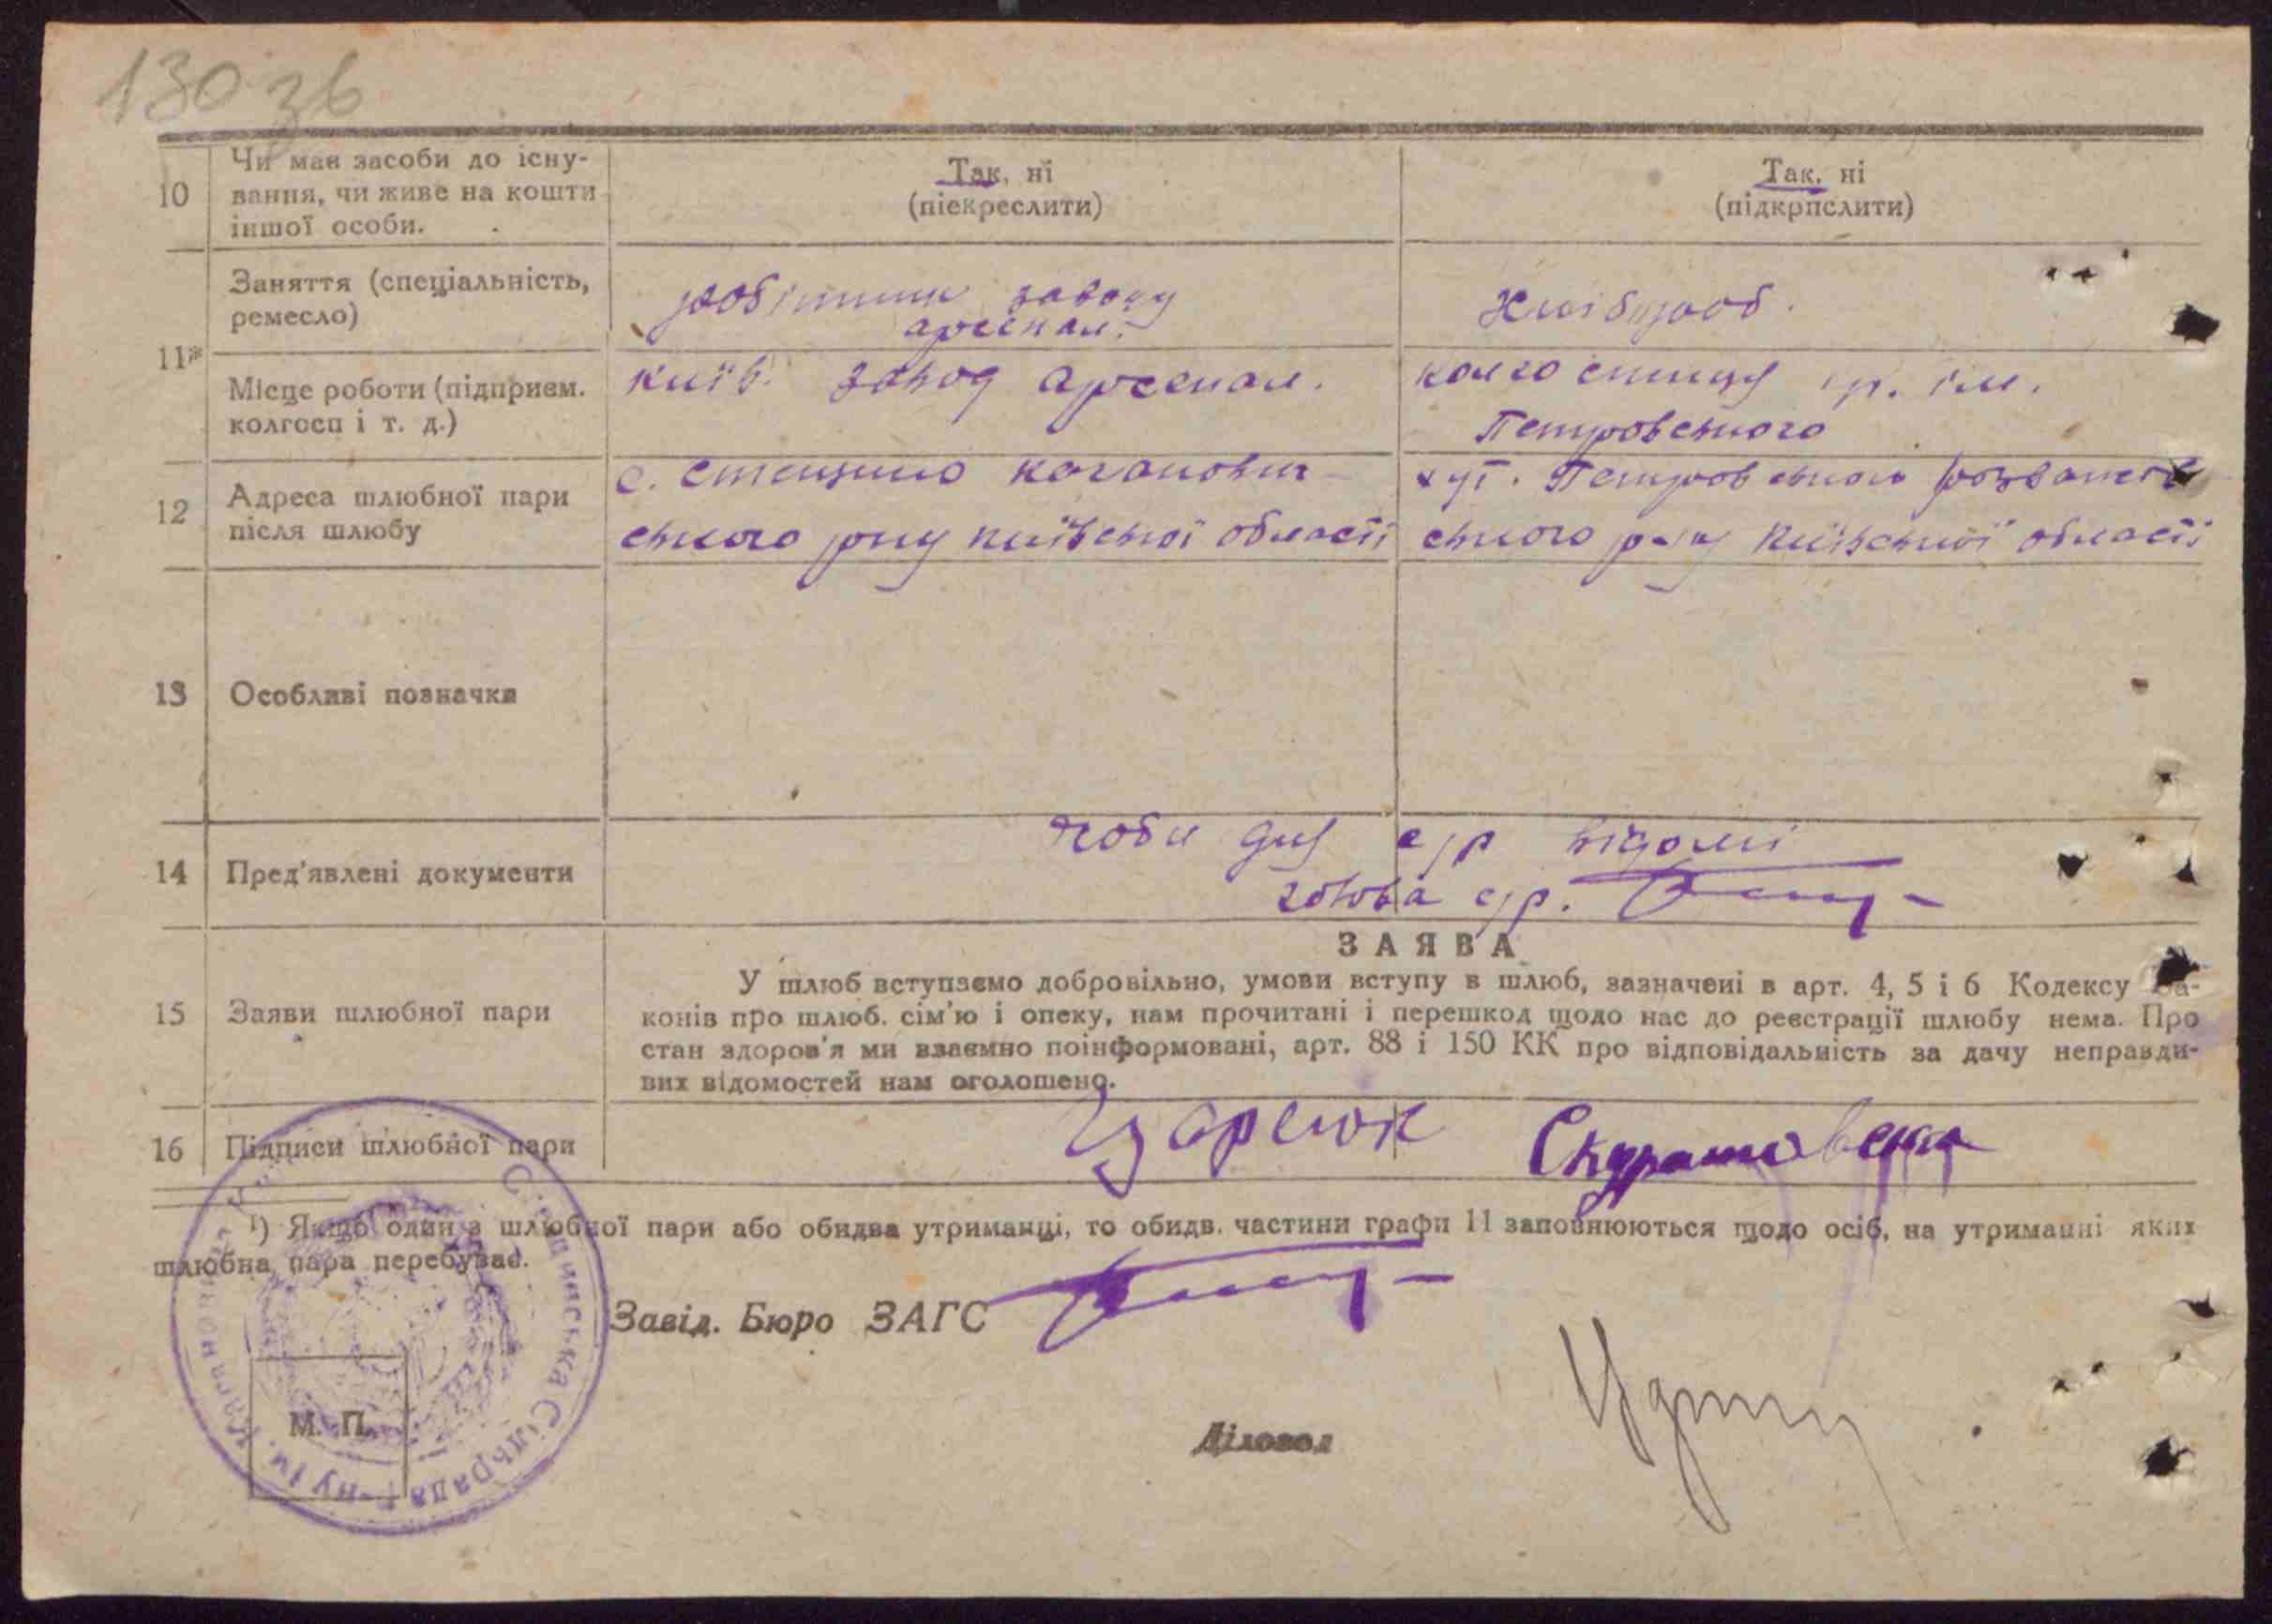 130 зв
10
Чи має засоби до існу-
вання, чи живе на кошти
іншої особи.
Так, ні
(піекреслити)
Так, ні
(підкрпслити)
11
Заняття (спеціальність,
ремесло)
робітник заводу
арсенал.
Хлібороб.
Місце роботи (підприєм.
колгосп і т. д.)
київ. завод арсенал.
колгоспниця гр. ім.
Петровського
12
Адреса шлюбної пари
після шлюбу
с. Стещино Каганович-
ського р-ну київської області
хут. Петровського Розважів-
ського р-ну Київської області
13
Особливі позначки
14
Пред'явлені документи
особи для с/р відомі
голова с/р.
15
Заяви шлюбної пари
ЗАЯВА
У шлюб вступаємо добровільно, умови вступу в шлюб, зазначені в арт. 4, 5 і 6 Кодексу За-
конів про шлюб. сім'ю і опеку, нам прочитані і перешкод щодо нас до реєстрації шлюбу нема. Про
стан здоров'я ми взаємно поінформовані, арт. 88 і 150 КК про відповідальність за дачу неправди-
вих відомостей нам оголошено.
16
Підписи шлюбної пари
Царюк
Скуратовска
1) Якщо один з шлюбної пари або обидва утриманці, то обидв. частини графи 11 заповнюються щодо осіб, на утриманні яких
шлюбна пара перебуває.
Завід. Бюро ЗАГС
М. П.
Діловод
Сільрада р-ну ім. Каганович